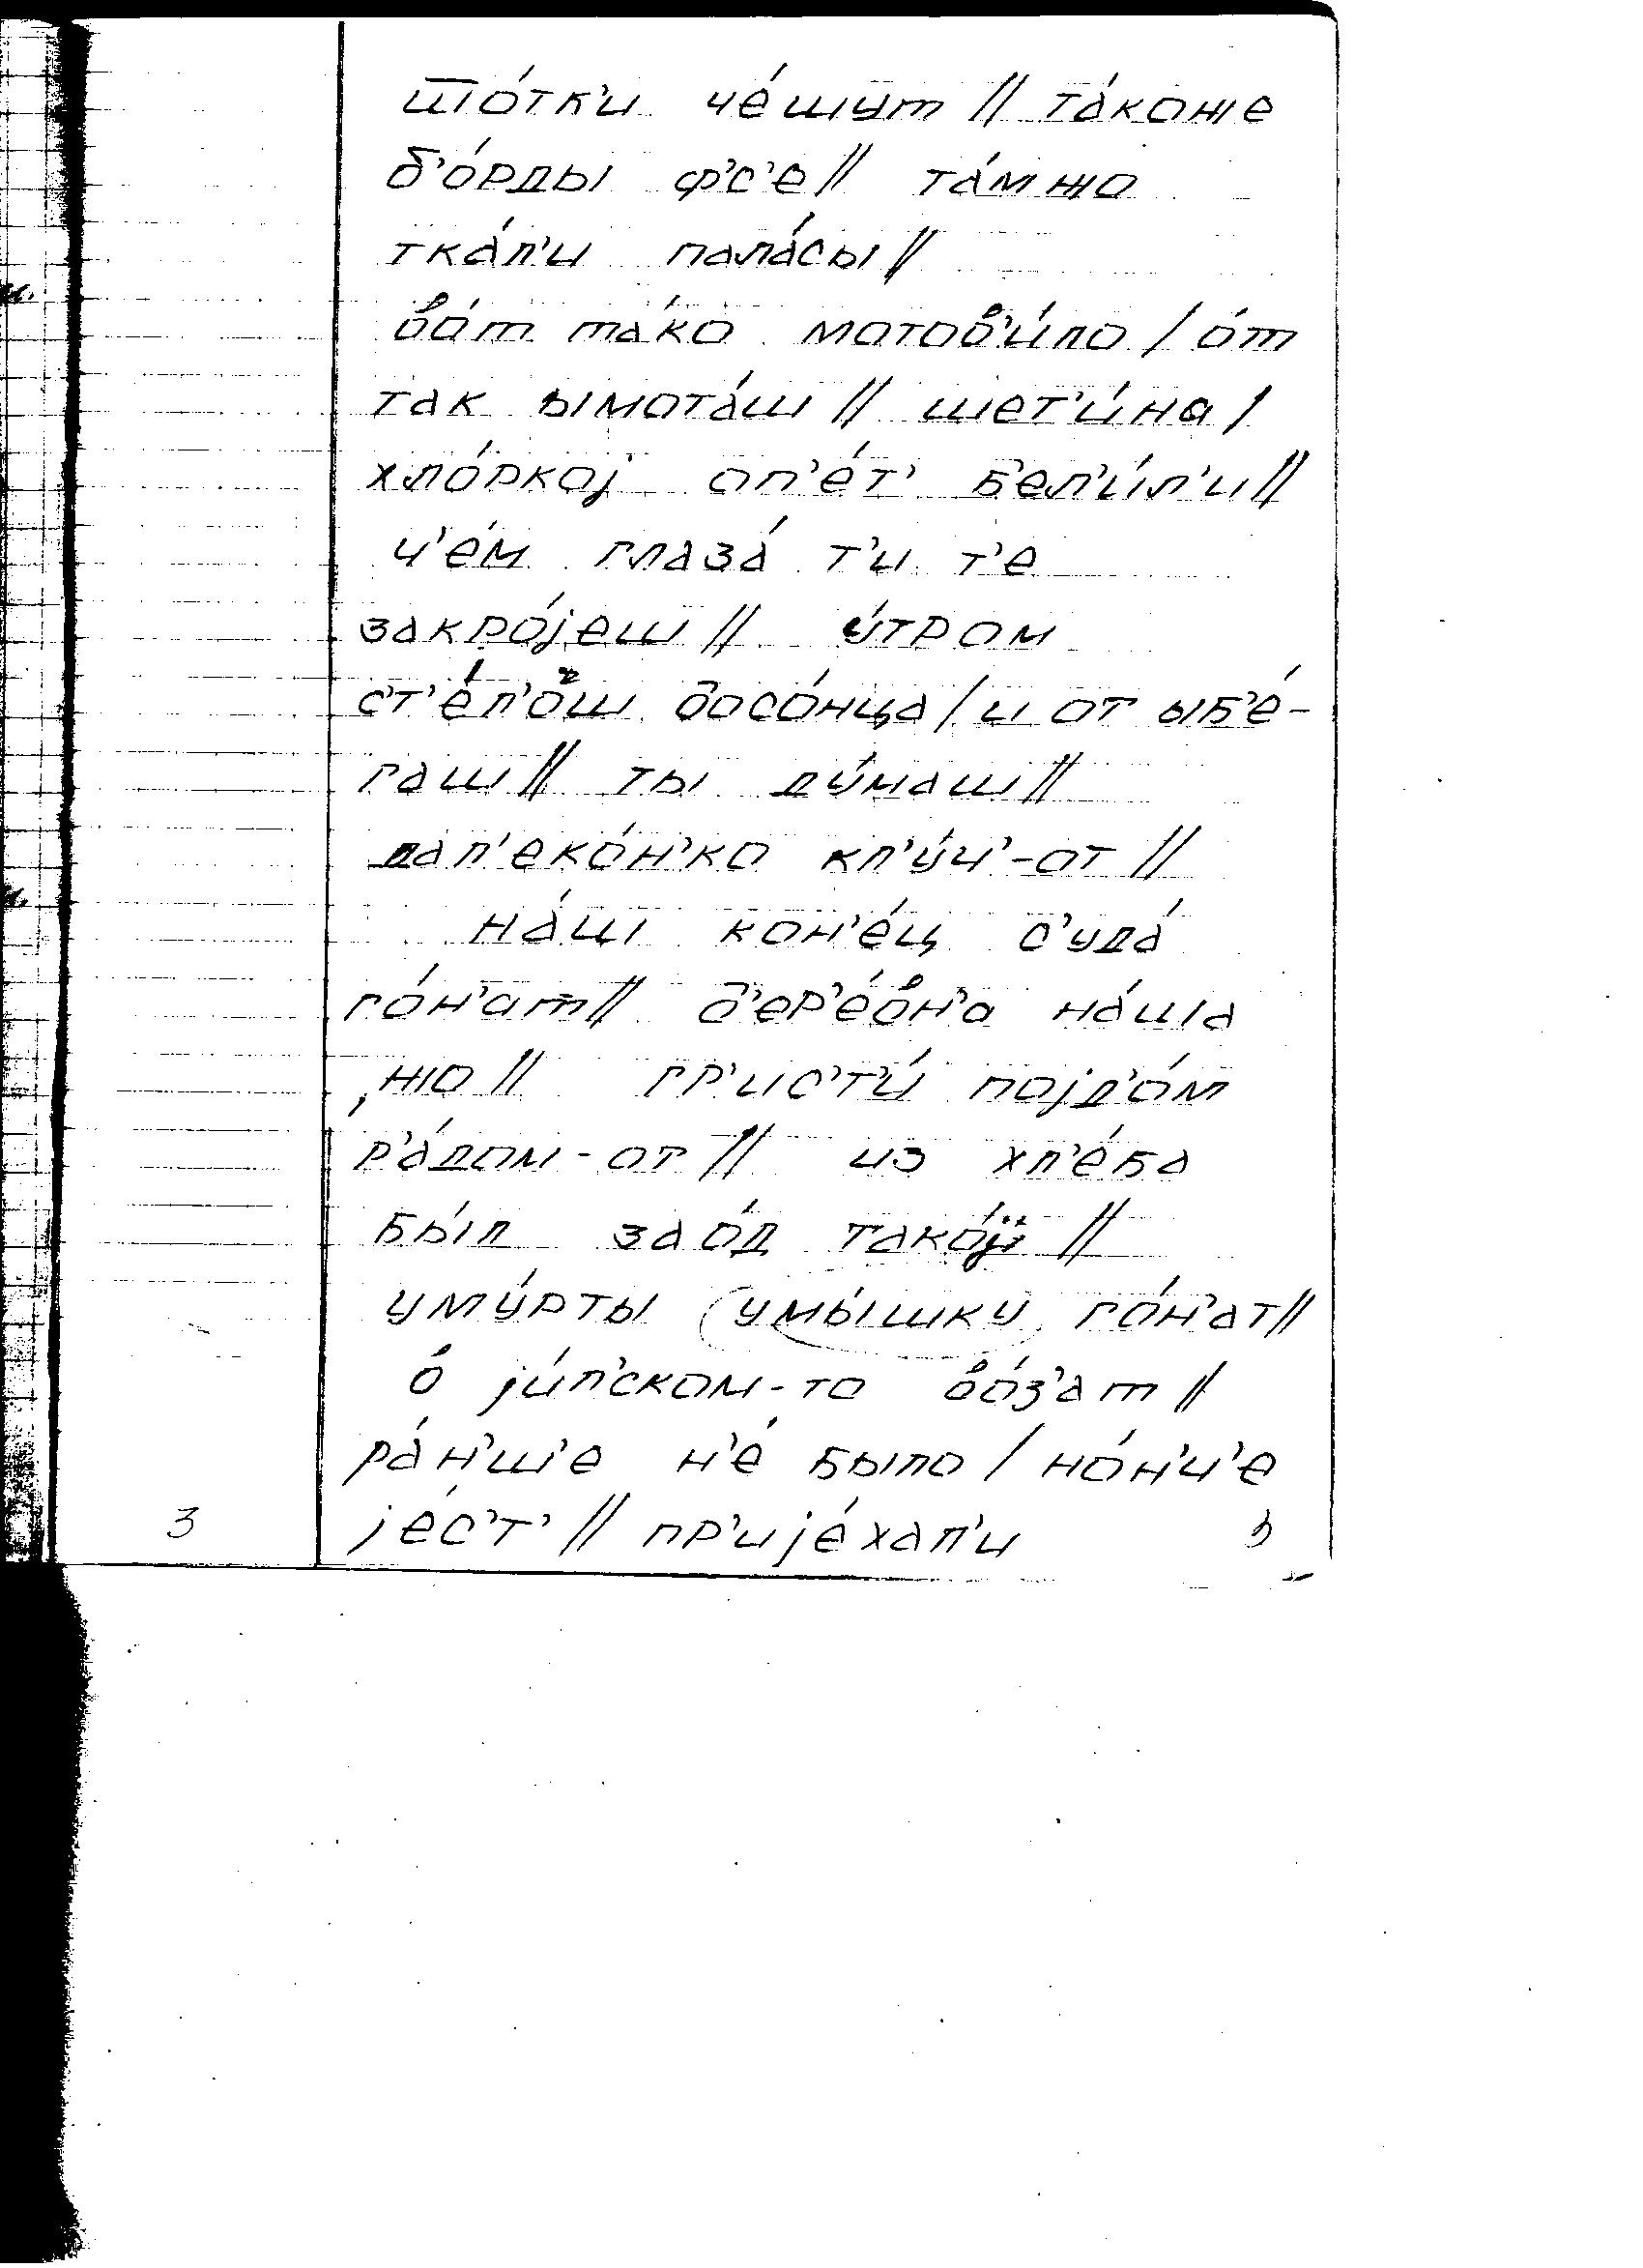 шо́тк'и че́шут // та́коже
б'о́рды ф'с'е // та́мжо
тка́л'и пала́сы //
во́т та́ко мотов'и́ло / о́т
так ымота́ш // шет'и́на /
хло́ркој оп'е́т' бел'и́л'и //
ч'е́м глаза́ т'и т'е
закро́јеш // у́тром
ст'е́л'о̆ш босо́нца / и от ыб'е́-
гаш // ты ду́маш //
дал'еко́н'ко кл'у́ч'-от //
на́ш кон'е́ц с'уда́
го́н'ат // д'ер'е́вн'а на́ша
жо // гр'ис'т'и́ појд'о́м
р'а́дом-от // из хл'е́ба
бы́л зао́д тако́ј //
уму́рты умы́шку го́н'ат //
в ји́л'ском-то во́з'ат //
ра́н'ш'е н'е́ было / но́н'ч'е
је́с'т' // пр'ије́хал'и
3 3